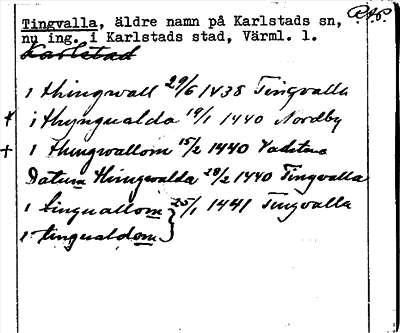 Tingvalla, äldre namn på Karlstads sn, P.A?.
nu ing. i Karlstads stad, Värml. l.
Karlstad
i thingwall 29/6 1438 Tingvalla
+ i thyngualda 19/1 1440 Nordby
+ i thingwallom 15/2 1440 Vadstena
Datum thingwalda 28/2 1440 Tingvalla
i tinguallom } 25/1 1441 Tingvalla
i tingualdom